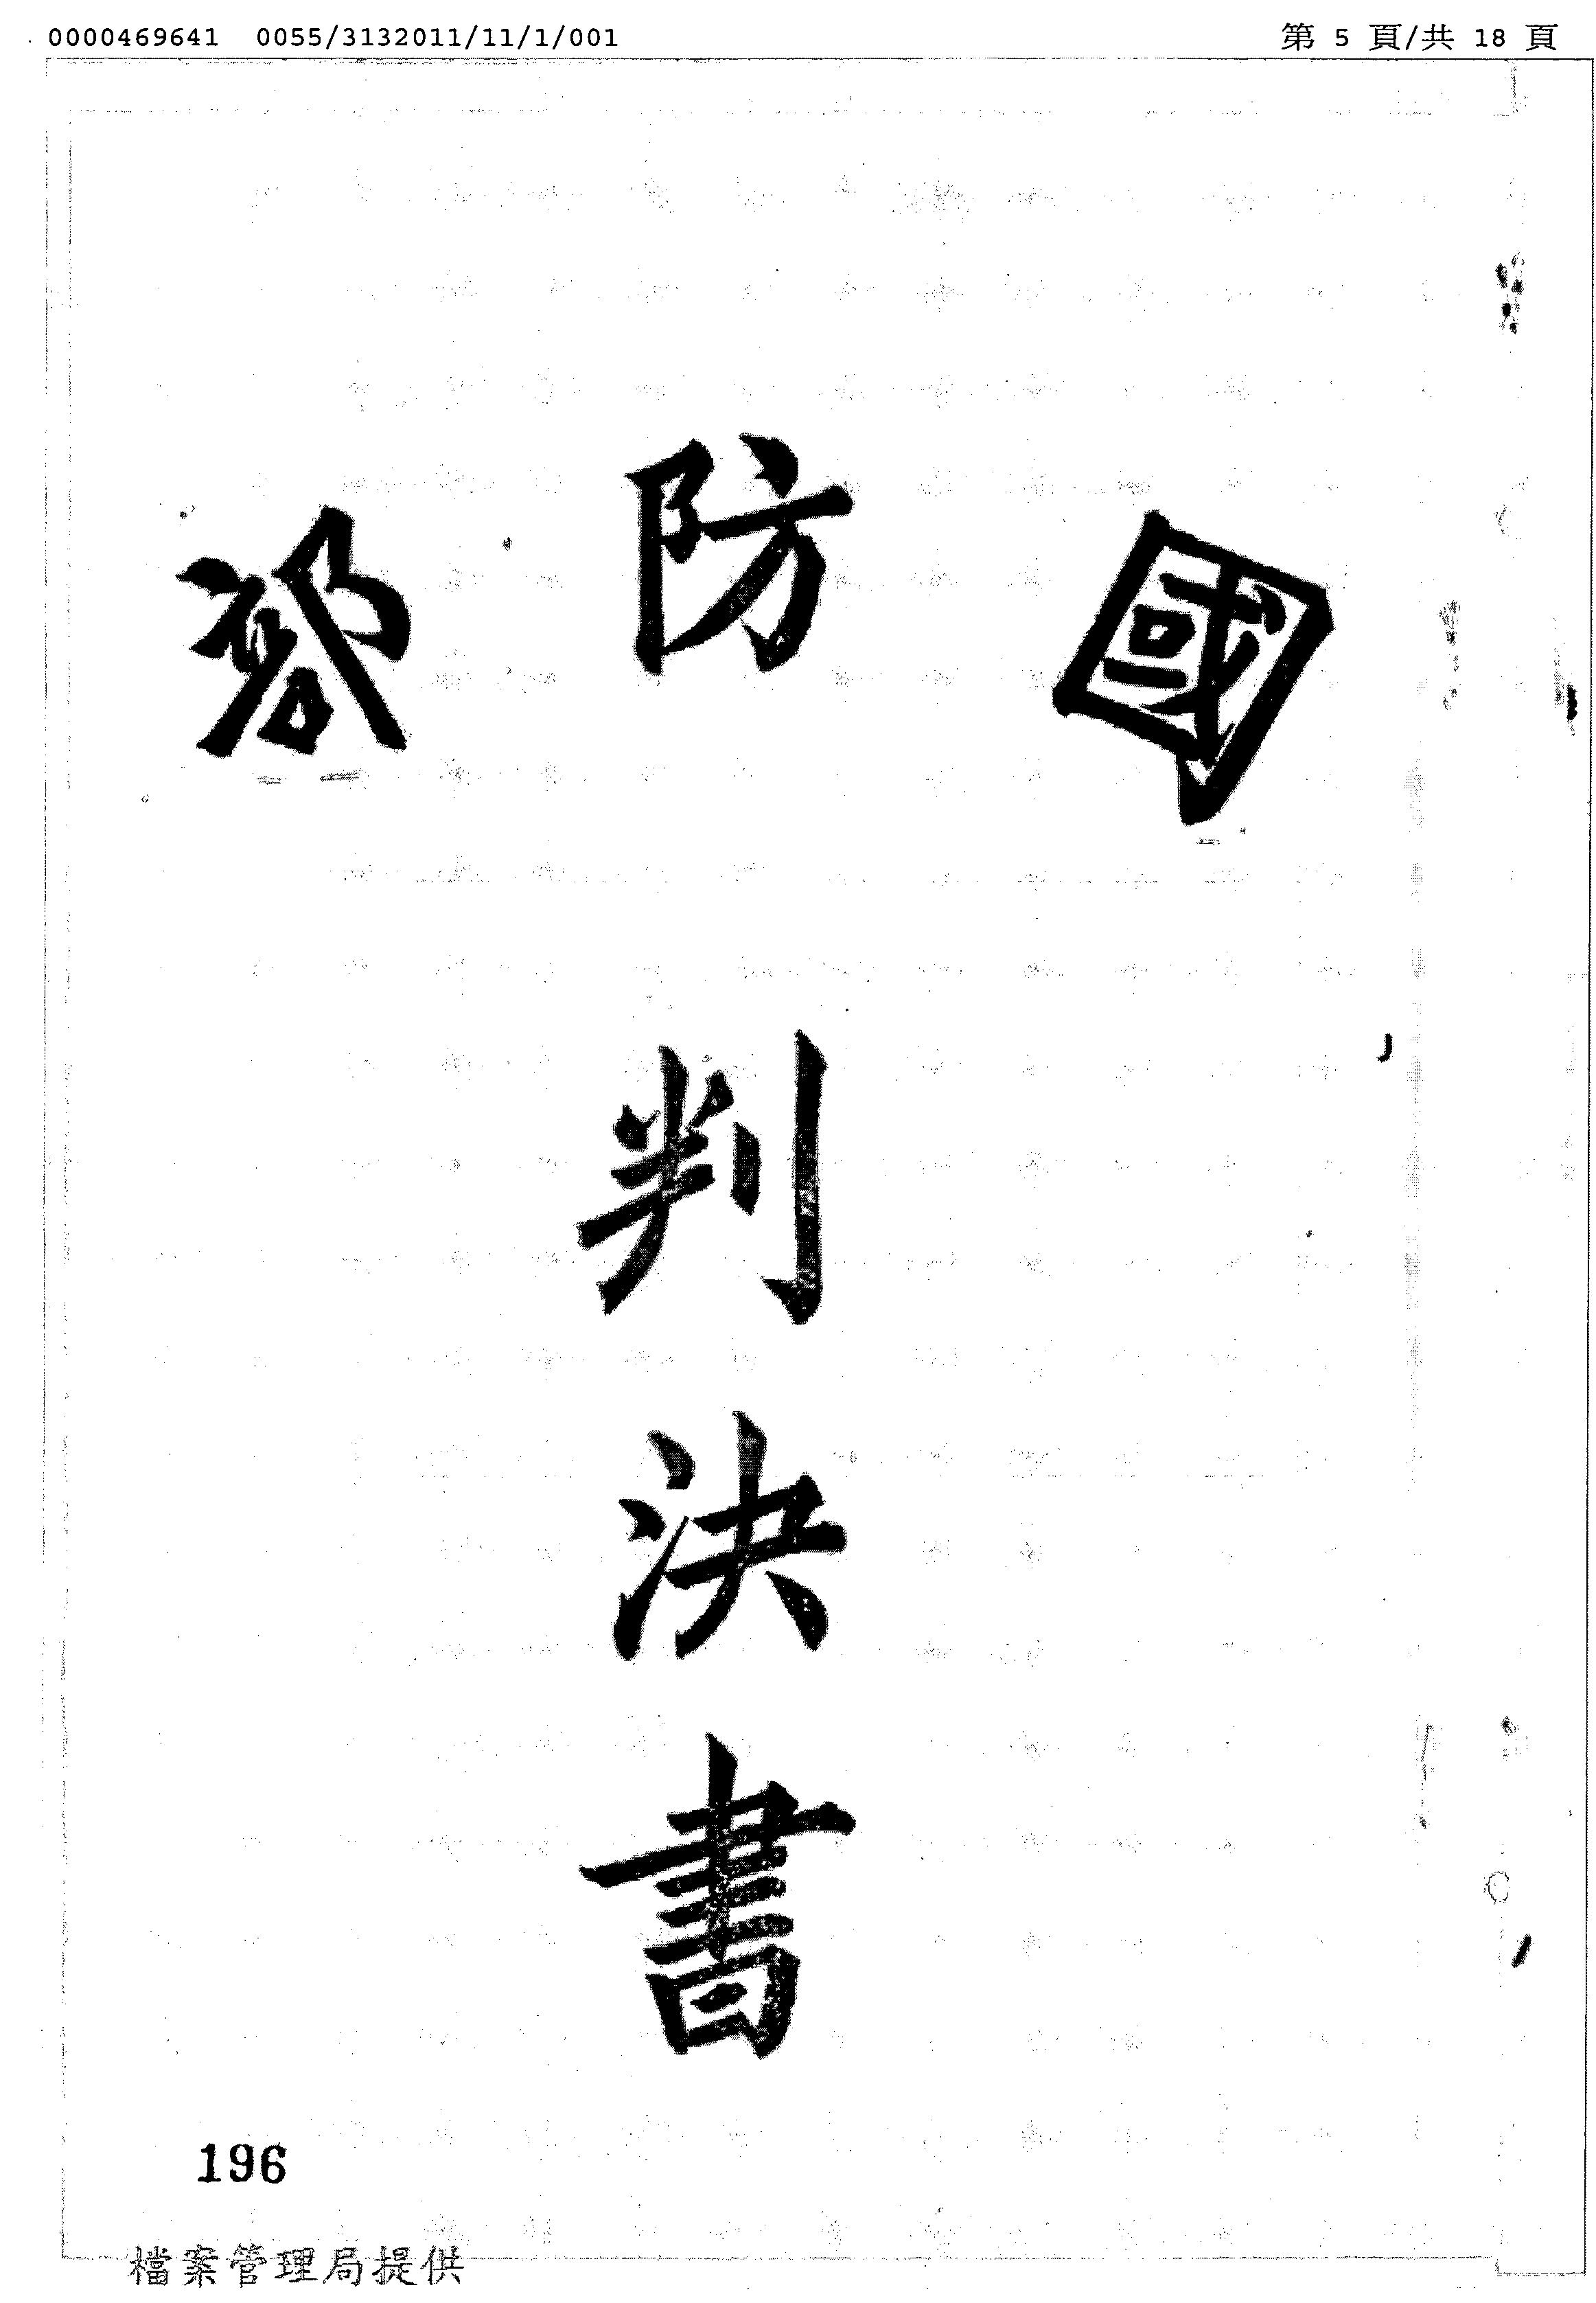 0000469641 0055/3132011/11/1/001 第 5 頁/共 18 頁
國防部
判決書
196
檔案管理局提供